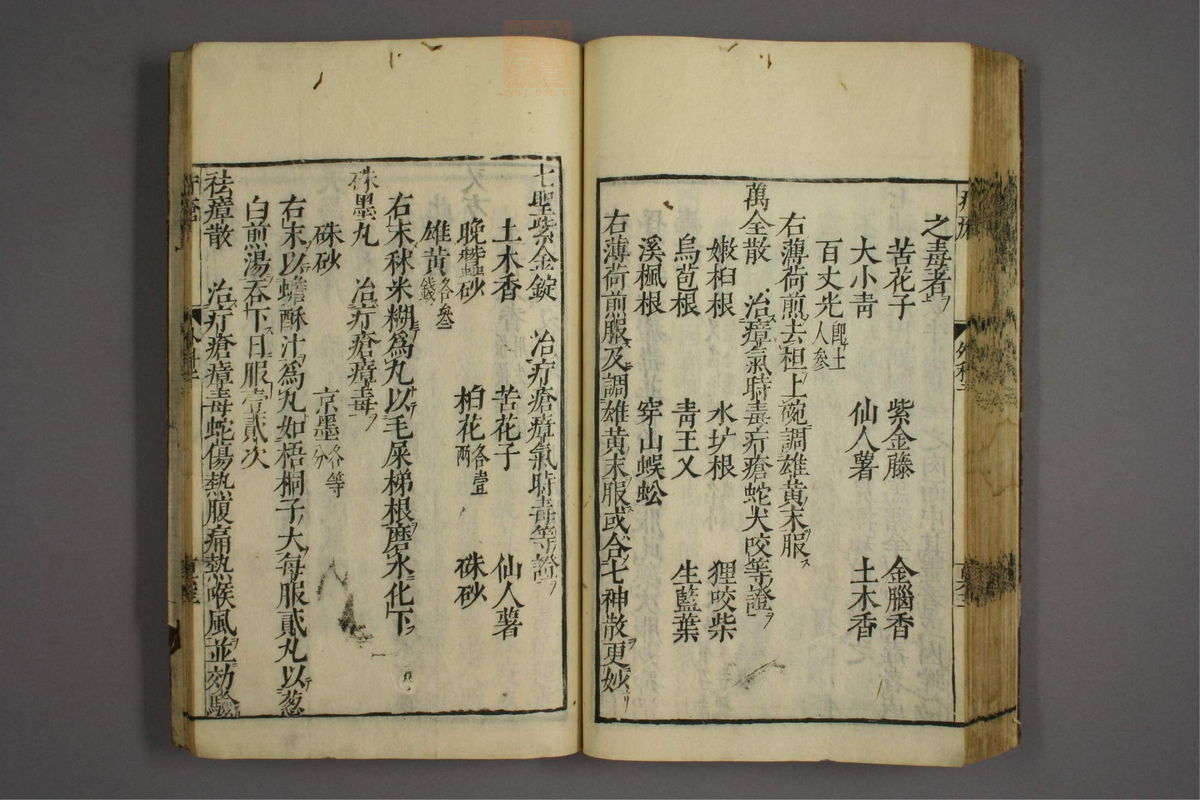 之毒者
苦花子 紫金藤 金腦香
大小青 仙人薯 土木香
百丈光 即土人參
右薄荷煎去柤上碗調雄黃末服
萬全散 治瘴氣時毒疔瘡蛇犬咬等證
嫩桕根 水圹根 狸咬柴
烏苞根 青王乂 生藍葉
溪楓根 穿山蜈蚣
右薄荷煎服及調雄黃末服或合七神散更妙
七聖紫金錠 治疔瘡瘴氣時毒等證
土木香 苦花子 仙人薯
晚蠶砂 桕花各壹兩 硃砂
雄黃各叁錢
右末秫米糊為丸以毛屎梯根磨水化下
硃墨丸 治疔瘡瘴毒
硃砂 京墨各等分
右末以蟾酥汁為丸如梧桐子大每服貳丸以葱
白煎湯吞下日服壹貳次
祛瘴散 治疔瘡瘴毒蛇傷熱腹痛熱喉風並効驗